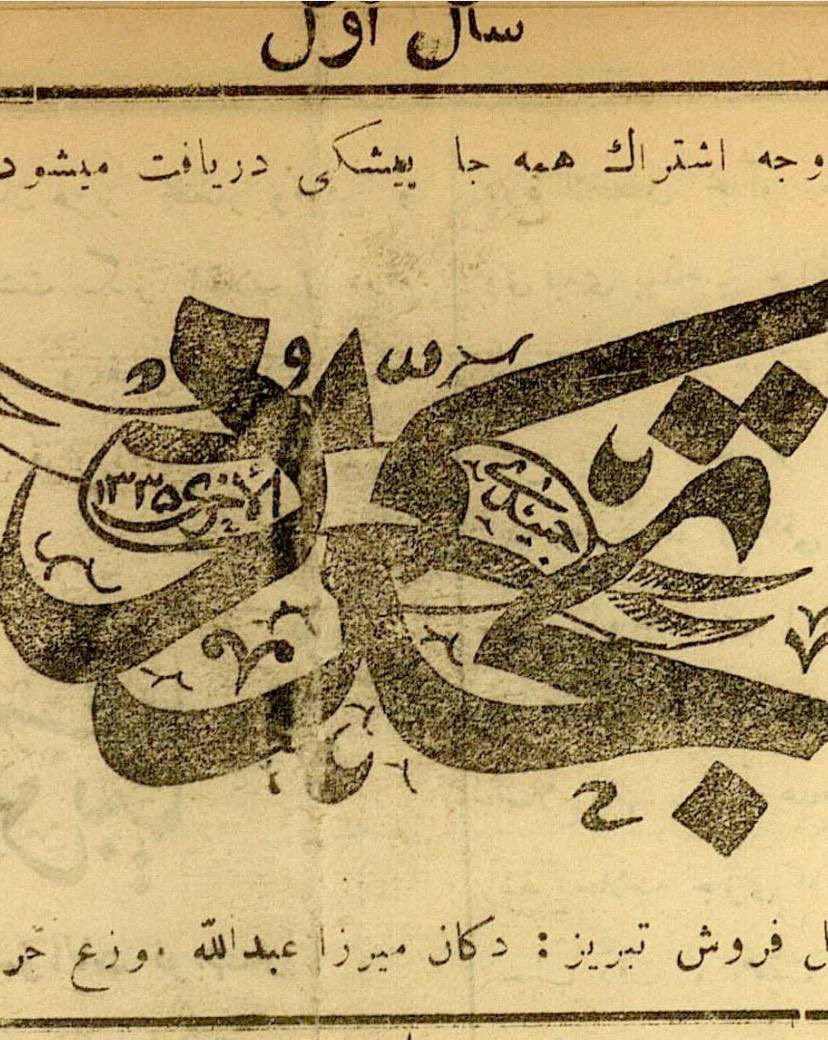 سال اول
وجه اشتراك همه جا پیشكی دریافت میشود
تجدد
الأخری ۱۳۳۵
ل فروش تبریز : دكان میرزا عبدالله .وزع جر